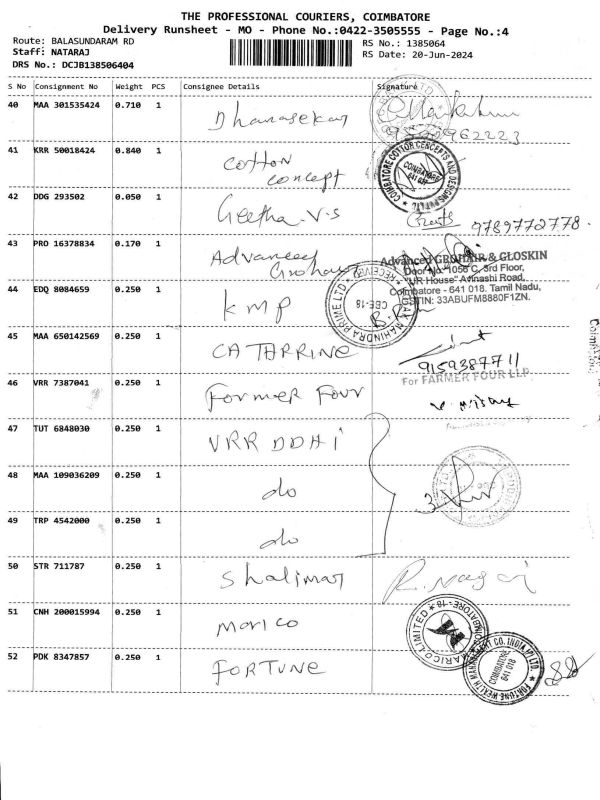 THE PROFESSIONAL COURIERS, COIMBATORE
Delivery Runsheet - MO - Phone No.:0422-3505555 - Page No.:4
Route: BALASUNDARAM RD
RS No.: 1385064
Staff: NATARAJ
RS Date: 20-Jun-2024
DRS No.: DCJB138506404
S No Consignment No Weight PCS Consignee Details Signature
40 MAA 301535424 0.710 1 Dhanasekar
41 KRR 50018424 0.840 1 Cotton
concept
COIMBATORE COTTON CONCEPTS AND DESIGNS PVT LTD
COIMBATORE
641 018
42 DDG 293502 0.050 1 Geetha.V.S
9789772778.
43 PRO 16378834 0.170 1 Advanced
Grohair
Advanced GROHAIR & GLOSKIN
Door No. 1056 C, 3rd Floor,
"UR House" Avinashi Road,
Coimbatore - 641 018. Tamil Nadu,
GSTIN: 33ABUFM8880F1ZN.
44 EDQ 8084659 0.250 1 KMP
RECEIVED
CBE-18
MAHINDRA PRIME LTD
45 MAA 650142569 0.250 1 CATHRRINE
9159387711
46 VRR 7387041 0.250 1 Former Four
For FARMER FOUR LLP.
47 TUT 6848030 0.250 1 VRR DDHI
48 MAA 109036209 0.250 1 do
49 TRP 4542000 0.250 1 do
50 STR 711787 0.250 1 Shalimar
R. Nagai
51 CNH 200015994 0.250 1 Marico
MARICO LIMITED
COIMBATORE-18
52 PDK 8347857 0.250 1 FORTUNE
FORTUNE WEALTH MANAGEMENT CO. INDIA (P) LTD.
COIMBATORE
641 018